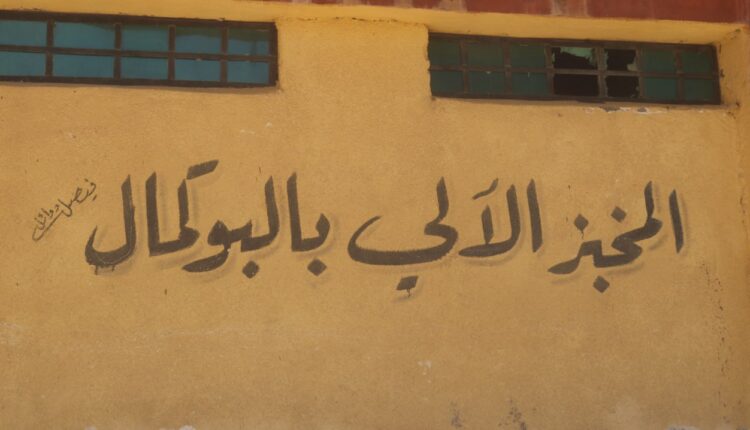 المخبز الآلي بالبوكمال
فيصل